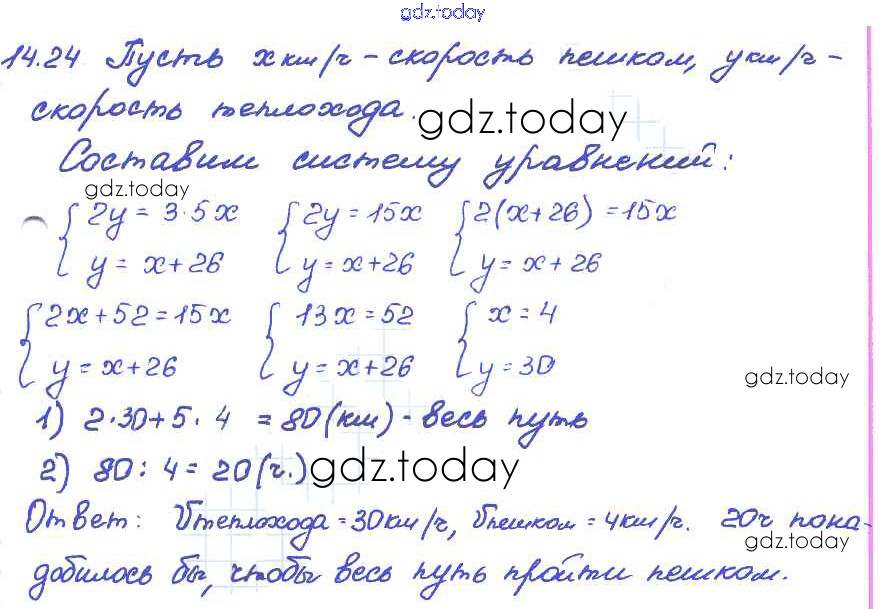 gdz.today
14.24 Пусть x км/ч - скорость пешком, y км/ч -
скорость теплохода.
gdz.today
Составим систему уравнений:
gdz.today
{2y = 3·5x {2y = 15x {2(x+26) = 15x
{y = x+26 {y = x+26 {y = x+26
{2x+52=15x {13x=52 {x=4
{y=x+26 {y=x+26 {y=30
gdz.today
1) 2·30+5·4 = 80(км) - весь путь
2) 80:4=20(ч.)
gdz.today
Ответ: Vтеплохода=30км/ч, Vпешком=4км/ч. 20ч пона-
gdz.today
добилось бы, чтобы весь путь пройти пешком.